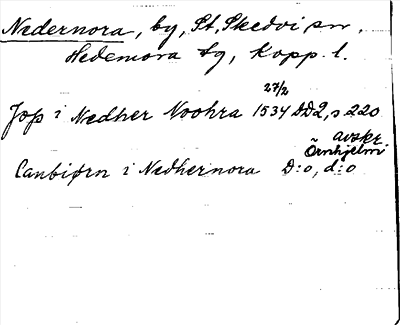 Nedernora, by, St. Skedvi sn,
Hedemora tg, Kopp. l.
Jop i Nedher Noohra 1534 27/2 DD2, s 220
Canbiørn i Nedhernora D:o, d:o avskr. Örnhjelm